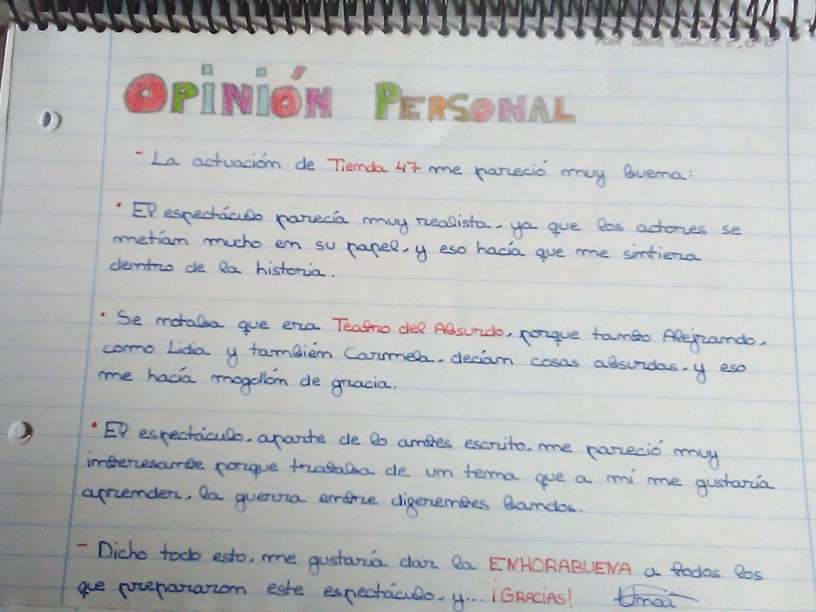 OPINIÓN PERSONAL
- La actuación de Tienda 47 me pareció muy buena:
• El espectáculo parecía muy realista, ya que los actores se
metían mucho en su papel, y eso hacía que me sintiera
dentro de la historia.
• Se notaba que era Teatro del Absurdo, porque tanto Alejzando,
como Lidia y también Carmela, decían cosas absurdas, y eso
me hacía mogollón de gracia.
• El espectáculo, aparte de lo antes escrito, me pareció muy
interesante porque trataba de un tema que a mí me gustaría
aprender, la guerra entre diferentes bandos.
- Dicho todo esto, me gustaría dar la ENHORABUENA a todos los
que prepararon este espectáculo, y... ¡GRACIAS!